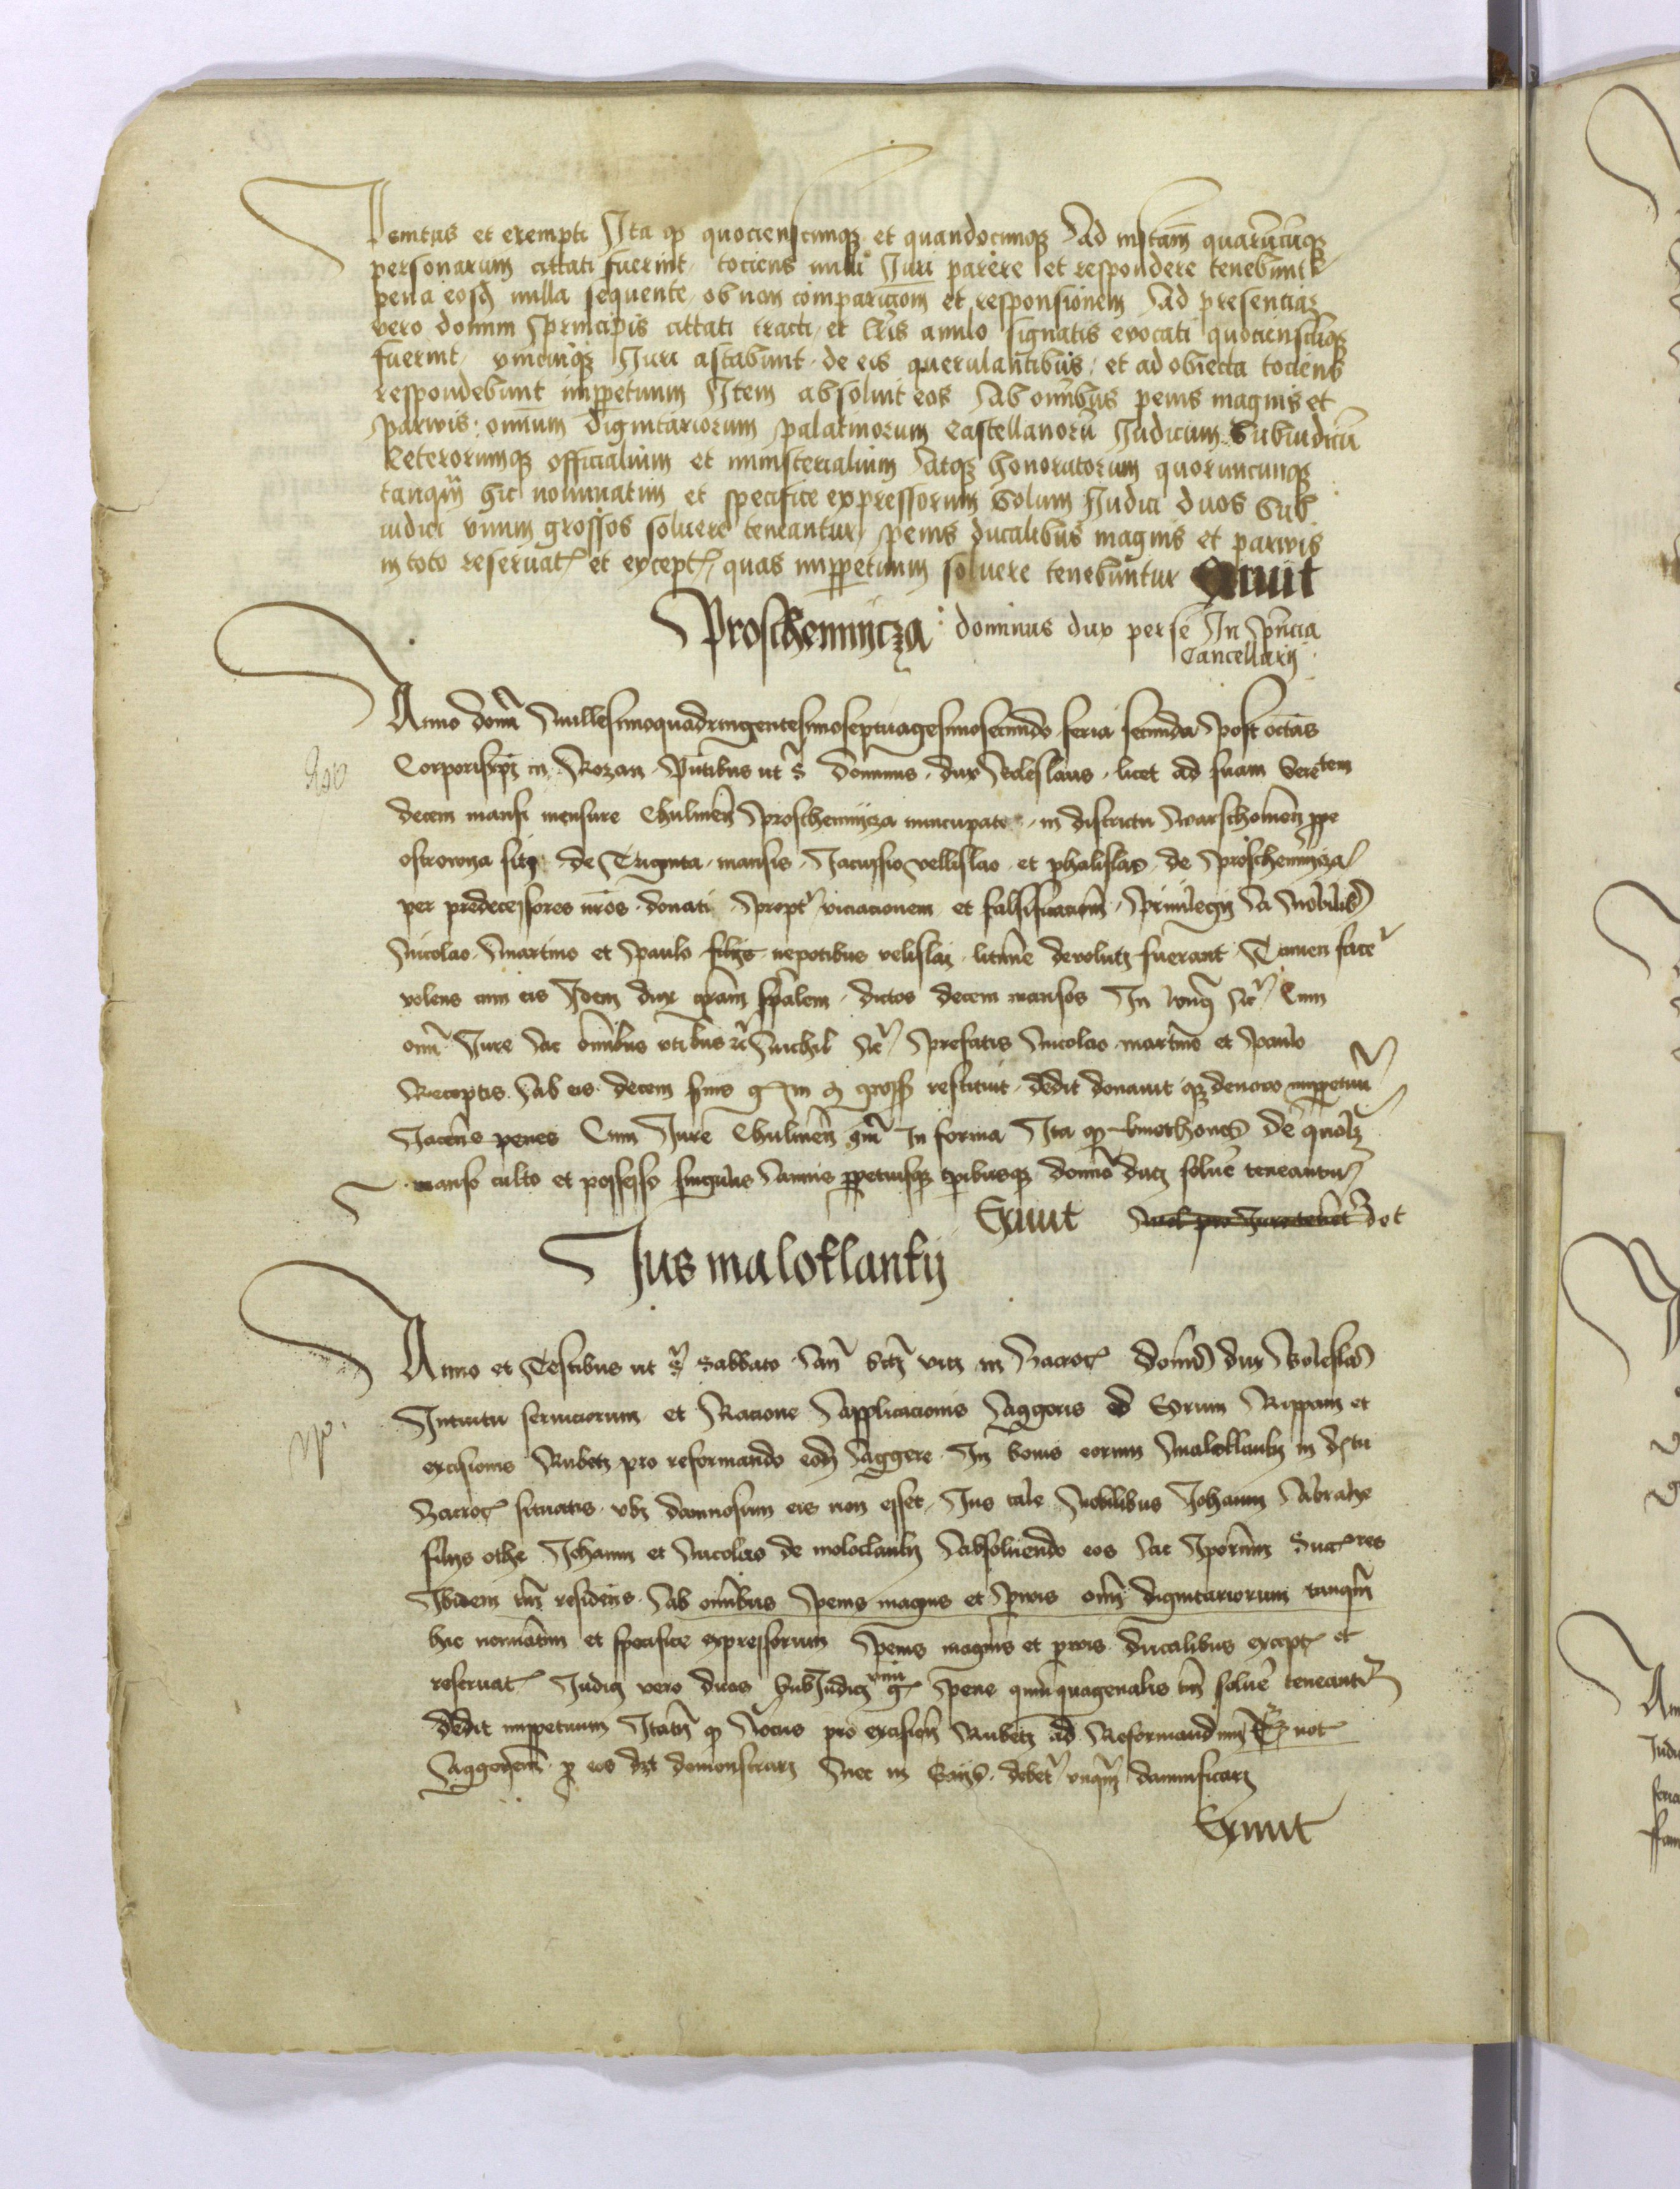 Penitus et exempti Ita qp quocienscunqz et quandocunqz Ad instam̄ quarūcūqz
personarum cittati fuerint tociens nulli Iuri parere et respondere tenebunt̄
pena eosq̄ nulla sequente ob non comparicōm et responsionem Ad presencias
vero domini principis cittati tracti et lrīs anulo signatis evocati quocienscūqz
fuerint vnicuiqz Iuri astabunt de eis querulantibus et ad obiecta tociens
respondebunt imppetuum Item absoluit eos Ab omībus penis magnis et
parwis omnium dignitariorum palatinorum Castellanorū Iudicum Subiudicū
Ceterorumqz officialium et ministerialium Atqz honoratorum quoruncunqz
tanqm̄ hic nominatim et specifice expressorum Solum Iudici duos Sub
iudici vnum grossos soluere teneantur penis ducalibus magnis et parwis
in toto reseruat et except quas imppetuum soluere tenebuntur Exiuit
Proscheninicza dominus dux per se In pn̄cia
Cancellarij
Anno domī Millesimoquadringentesimoseptuagesimosecundo feria secunda post octas
Corporis xpi in Rozan Pn̄tibus ut s̄ Dominus dux Boleslaus licet ad suam Sere tem
decem mansi mensure Chulmen̄ Proschenijcza nuncupate in districtu Warschowien̄ ppe
ostrowya sitj de Triginta mansis Jacussio vellislao et phalislao de Proschenijcza
per predecessores nr̄os donati Propt̄ viciacionem et falsificacion̄ Priuilegij A Nobilib
Nicolao Martino et Paulo filijs nepotibus velislai litime devoluti fuerant Tamen face
volens cum eis Idem dux grām sp̄alem dictos decem mansos In
omī Iure Ac om̄ibus vtībus Nichil Prefatis Nicolao martino et Paulo
Receptis Ab eis decem gross restituit dedit donauit qz denovo imppetuū
Jacēns penes Cum Iure Chulmen̄ In forma Ita qp kmethones de quolz
manso culto et possesso singulis Annis ppetuisqz tpibusqz domīo duci soluē teneantur
Exiuit dot
Jus malotlanky
Anno et Testibus ut s̄ Sabbato An̄ viti in Zacrocz domīs dux Boleslas
Intuitu seruiciorum et Racione Applicacionis Aggeris ad Eorum Rippam et
excisionis Rubeti pro reformando eodē Aggere In bonis eorum Malotlanky in dstu
Zacrocz situatis vbi damnosum eis non esset Ius tale Nobilibus Johanni Abrahe
filijs othe Johanni et Nicolao de moloclanky Absoluendo eos Ac Iporum Succres
Ibidem tm̄ residens Ab om̄ibus Penis magnis et Pwis om̄ dignitariorum tanqm̄
hic nominatim et specifice expressorum Penis magnis et pwis ducalibus except et
reseruat Judici vero duos Subiudici vnū g Pene quinquagenalis tm̄ soluē teneant̄
dedit imppetuum Itatn̄ qp Locus pro excision̄ Rubeti ad Reformandum not
Aggerem p eos dz demonstrari Nec in debet vnqm̄ damnificari
Exiuit